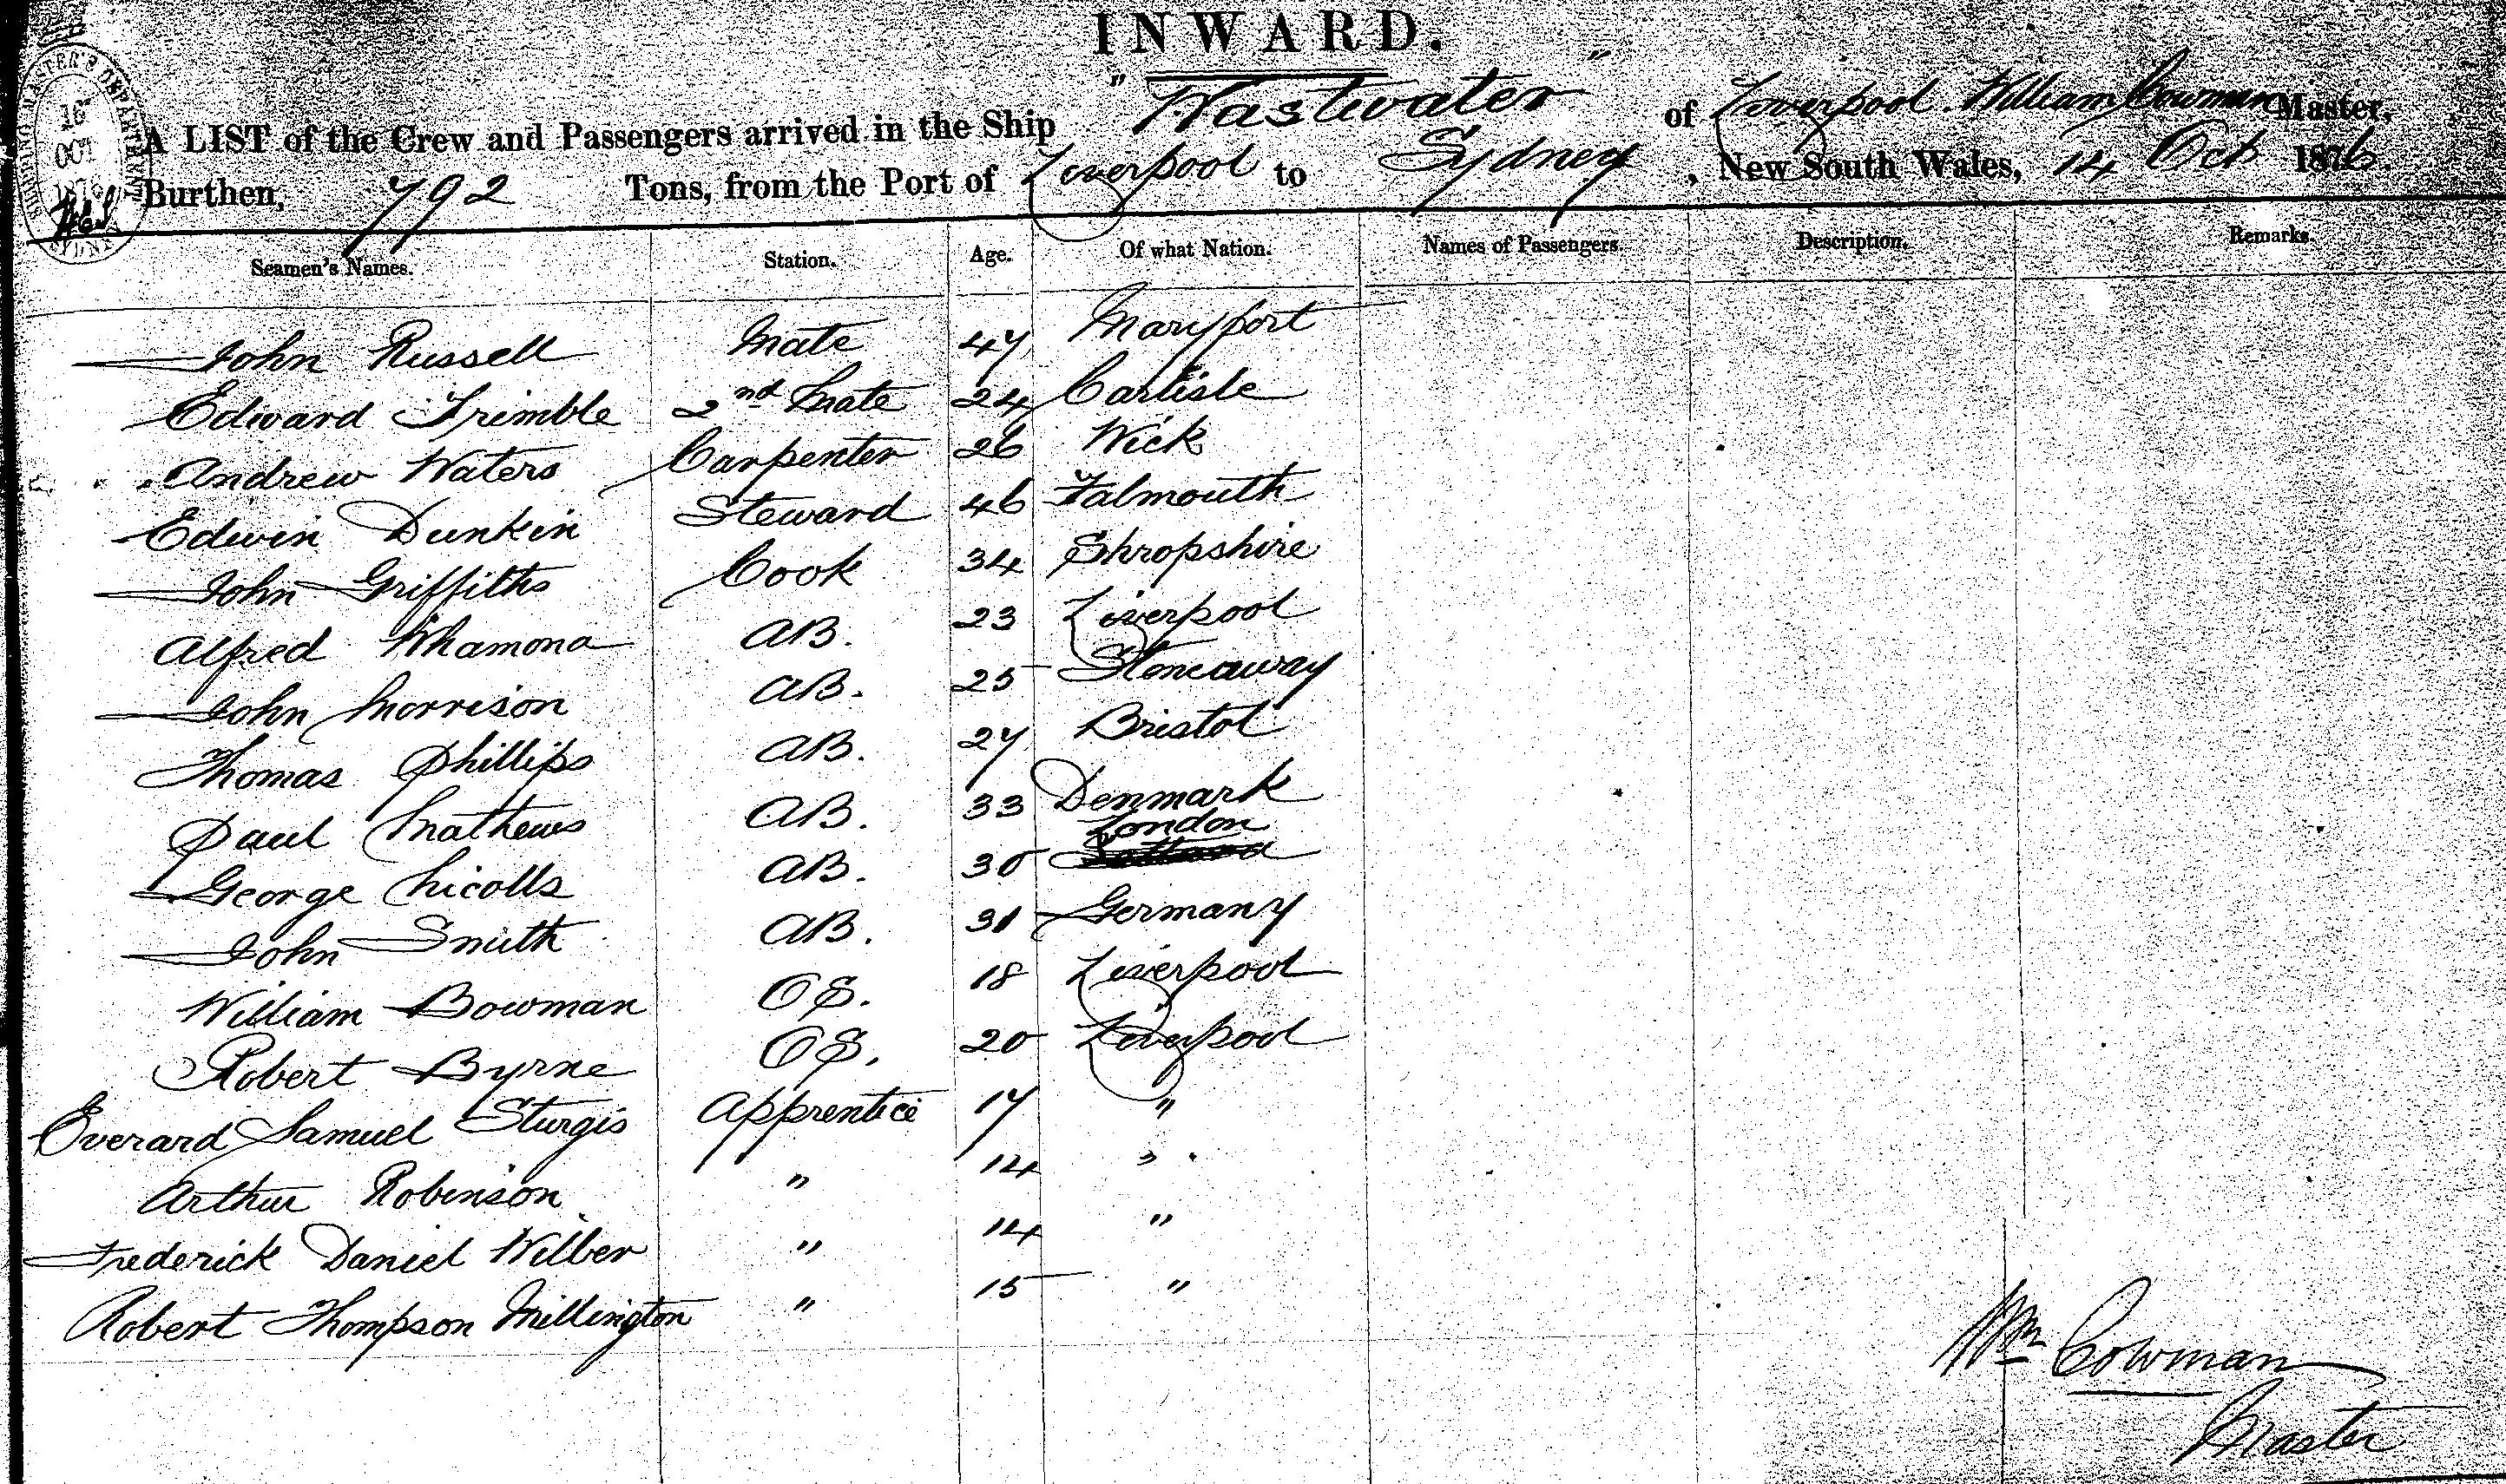 INWARD.
A LIST of the Crew and Passengers arrived in the Ship " Wastwater " of Liverpool. William Cowman Master,
Burthen, 792 Tons, from the Port of Liverpool to Sydney, New South Wales, 14 Oct 1876
16
OCT
Seamen's Names. Station. Age. Of what Nation. Names of Passengers. Description. Remarks.
John Russell Mate 47 Maryport
Edward Trimble 2nd Mate 24 Carlisle
Andrew Waters Carpenter 26 Wick
Edwin Dunkin Steward 46 Falmouth
John Griffiths Cook 34 Shropshire
Alfred Whamona AB. 23 Liverpool
John Morrison AB. 25 Stoneaway
Thomas Phillips AB. 27 Bristol
Paul Mathews AB. 33 Denmark
George Nicolls AB. 30 London
John Smith AB. 31 Germany
William Bowman OS. 18 Liverpool
Robert Byrne OS. 20 Liverpool
Everard Samuel Sturgis Apprentice 17 "
Arthur Robinson " 14 "
Frederick Daniel Wilber " 14 "
Robert Thompson Millington " 15 "
Wm Cowman
Master